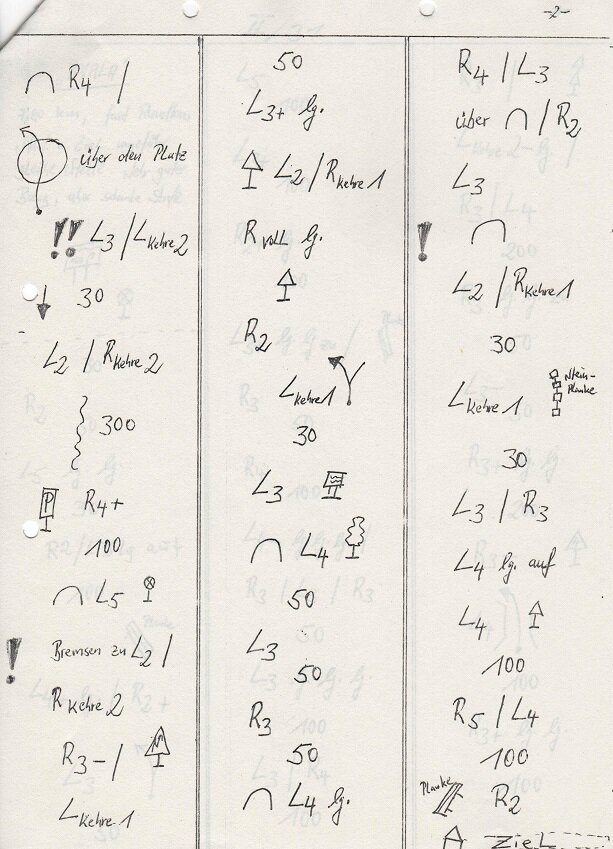 -2-
R4 /
über den Platz
!! L3 / LKehre2
30
L2 / RKehre2
300
P R4+
100
L5
! Bremsen zu L2 /
RKehre2
R3- /
LKehre1
50
L3+ lg.
L2 / RKehre1
Rvoll lg.
R2
LKehre1
30
L3
L4
50
L3
50
R3
50
L4 lg.
R4 / L3
über / R2
L3
!
L2 / RKehre1
30
LKehre1 Stein-
Planke
30
L3 / R3
L4 lg. auf
L4
100
R5 / L4
100
Planke R2
ZIEL